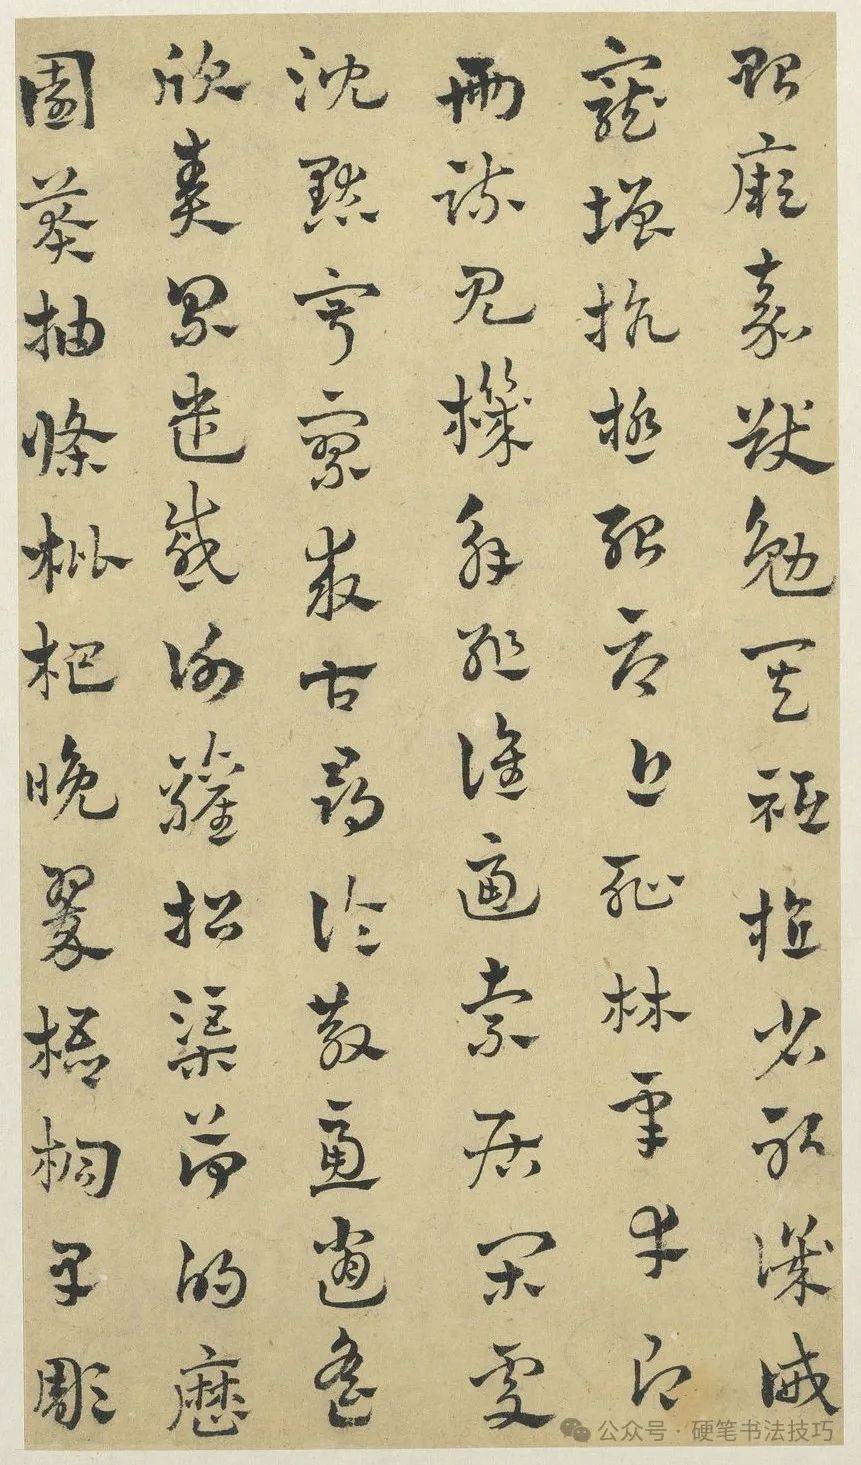 貽厥嘉猷勉其祗植省躬譏誡
寵增抗極殆辱近恥林皋幸即
兩疏見機解組誰逼索居閑處
沈默寂寥求古尋論散慮逍遙
欣奏累遣慼謝歡招渠荷的歷
園莽抽條枇杷晚翠梧桐早彫
公众号·硬笔书法技巧